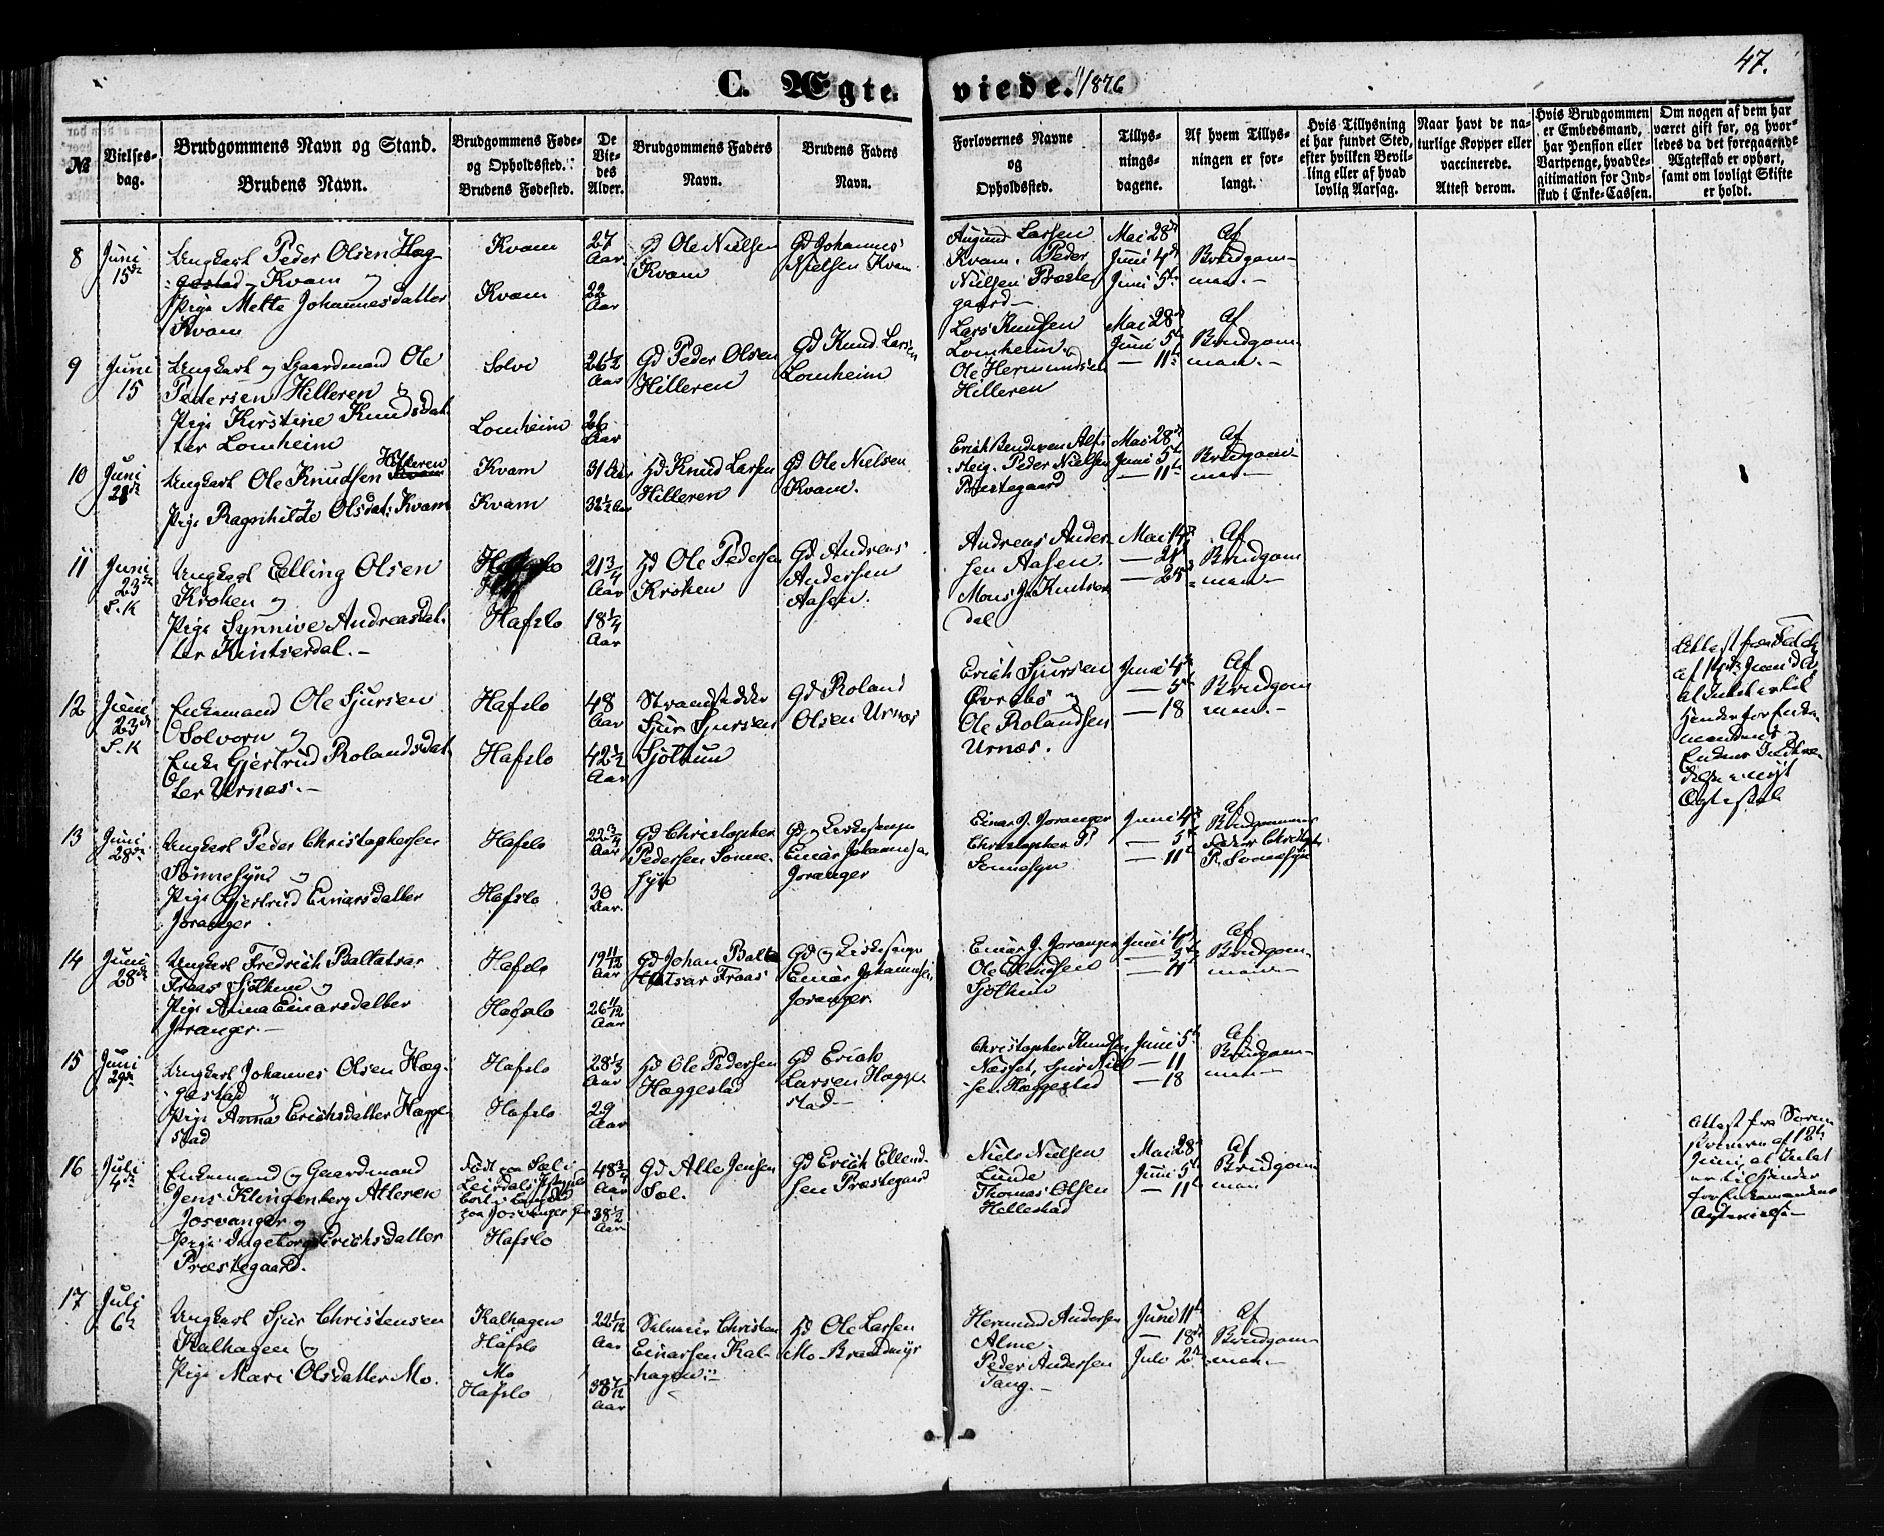 47.
C. Ægteviede. 1876
№
Vielses-
dag.
Brudgommens Navn og Stand.
Brudens Navn.
BrudgommensFøde-
og Opholdssted.
Brudens Fødested.
De
Vie-
des
Alder.
Brudgommens Faders
Navn.
Brudens Faders
Navn.
Forlovernes Navne
og
Opholdssted.
Tillys-
nings-
dagene.
Af hvem Tillys-
ningen er for-
langt.
Hvis Tillysning
ei har fundet Sted,
efter hvilken Bevil-
ling eller af hvad
lovlig Aarsag.
Naar havt de na-
turlige Kopper eller
vaccinerede.
Attest derom.
Hvis Brudgommen
er Embedsmand,
har Pension eller
Vartpenge, hvad Le-
gitimation for Ind-
skud i Enke-Cassen.
Om nogen af dem har
været gift før, og hvor-
ledes da det foregaaende
Ægteskab er ophørt,
samt om lovligt Skifte
er holdt.
8
Juni
15de
Ungkarl Peder Olsen Hæg-
gestad - Kvam og
Pige Mette Johannesdatter
Kvam
Kvam
Kvam
27
Aar
22
Aar
Gd Ole Nielsen
Kvam
Gd Johannes
Nielsen Kvam
Larsen
Kvam. Peder
Nielsen Præste
gaard
Mai 28de
Juni 4de
Juni 5te
Af
Brudgom-
man.
9
Juni
15
Ungkarl og Gaardmand Ole
Pedersen Hilleren og
Pige Kirstine Knudsdat
ter Lomheim
Solvi
Lomheim
26½
Aar
26
Aar
Gd Peder Olsen
Hilleren
Gd Knud Larsen
Lomheim
Lars Knudsen
Lomheim og
Ole Hermundsen
Hilleren
Mai 28
Juni 5te
— 11te
Af
Brudgom
man.
10
Juni
21de
Ungkarl Ole Knudsen Hilleren
Pige Ragnhilde Olsdat: Kvam
Kvam
Kvam
31 Aar
32½ Aar
Gd Knud Larsen
Hilleren
Gd Ole Nielsen
Kvam.
Erich
Peder Nielsen
Præstegaard
Mai 28de
Juni 5te
— 11te
Af
Brudgom
man
11
Juni
23de
S.K
Ungkarl Elling Olsen
Kroken og
Pige Synnive Andreasdat-
ter Kintserdal.
Hafslo
Hafslo
21¾
Aar
18¼
Aar
Hd Ole Pedersen
Kroken
Gd Andreas
Andersen
Aasen.
Andreas Ander
sen Aasen.
Mons J. Kintser
dal
Mai 14de
— 21
— 25
Af
Brudgom
man.
12
Juni
23de
S.K
Enkemand Ole Sjursen
Solvorn og
Enke Gjertrud Rolandsdat
ter Urnæs.
Hafslo
Hafslo
48
Aar
42½
Aar
Strandsidder
Sjur Sjursen
Sjøthun
Gd Roland
Olsen Urnæs
Erich Sjursen
Øvrebø og
Ole Rolandsen
Urnæs.
Juni 4de
— 5te
— 18
Af
Brudgom
man.
Attest fra
at Intet er til
Hinder for Enke-
mandens og
Enkens Indtræ-
delse i nyt
Ægteskab
13
Juni
28de
Ungkarl Peder Christophersen
Sønnesyn og
Pige Gjertrud Einarsdatter
Joranger
Hafslo
Hafslo
22¾
Aar
30
Aar.
Gd Christopher
Pedersen Sønne-
syn
Gd og Kirkesanger
Einar Johannesen
Joranger
Einar J. Joranger
Christopher P.
Sønnesyn
Juni 4de
— 5te
— 11te
Af
Brudgommens
Fader Christoph
P. Sønnesyn
14
Juni
28de
Ungkarl Fredrich Baltatsar
Fraas Sjøthun og
Pige Anna Einarsdatter
Joranger.
Hafslo
Hafslo
19 11/12
Aar
26 11/12
Aar
Gd Johan Balta
tsar Fraas
Gd og Kirkesanger
Einar Johannesen
Joranger
Einar J. Joranger
Ole
Sjøthun
Juni 4de
— 5te
— 11
Af
Brudgom-
man
15
Juni
29de
Ungkarl Johannes Olsen Hæg-
gestad og
Pige Anna Erichsdatter Hægge
stad
Hafslo
Hafslo
28⅓
Aar
29
Aar
Hd Ole Pedersen
Hæggestad
Gd Erich
Larsen Hægge
stad
Christopher Knudsen
Næsset, Sjur Niel
sen Hæggestad
Juni 5te
— 11
— 18
Af
Brudgom-
man
16
Juli
4de
Enkemand og Gaardmand
Jens Klingenberg Atleren
Josvanger og
Pige Ingeborg Erichsdatter
Præstegaard.
Født paa Sæl i
Leirdals
paa Josvanger
Hafslo
48¾
Aar
38½
Aar
Gd Atle Jensen
Sæl.
Gd Erich Ellend-
sen Præstegaard
Niels Nielsen
Lunde
Thomas Olsen
Hellestad
Mai 28
Juni 5te
— 11te
Af
Brudgom
man
Attest fra Soren
skriveren af 12te
Juni, at Intet
er til Hinder
for Enkemandens
17
Juli
6te
Ungkarl Sjur Christensen
Kalhagen og
Pige Mari Olsdatter Mo.
Kalhagen
Hafslo
Mo
Hafslo
22 1/12
Aar
38 7/12
Aar
Christen
Einarsen Kal-
hagen
Hd Ole Larsen
Mo Brandmyr
Hermund Andersen
Alme.
Peder Andersen
Tang.
Juni 11te
— 18de
Juli 2den
Af
Brudgom-
man